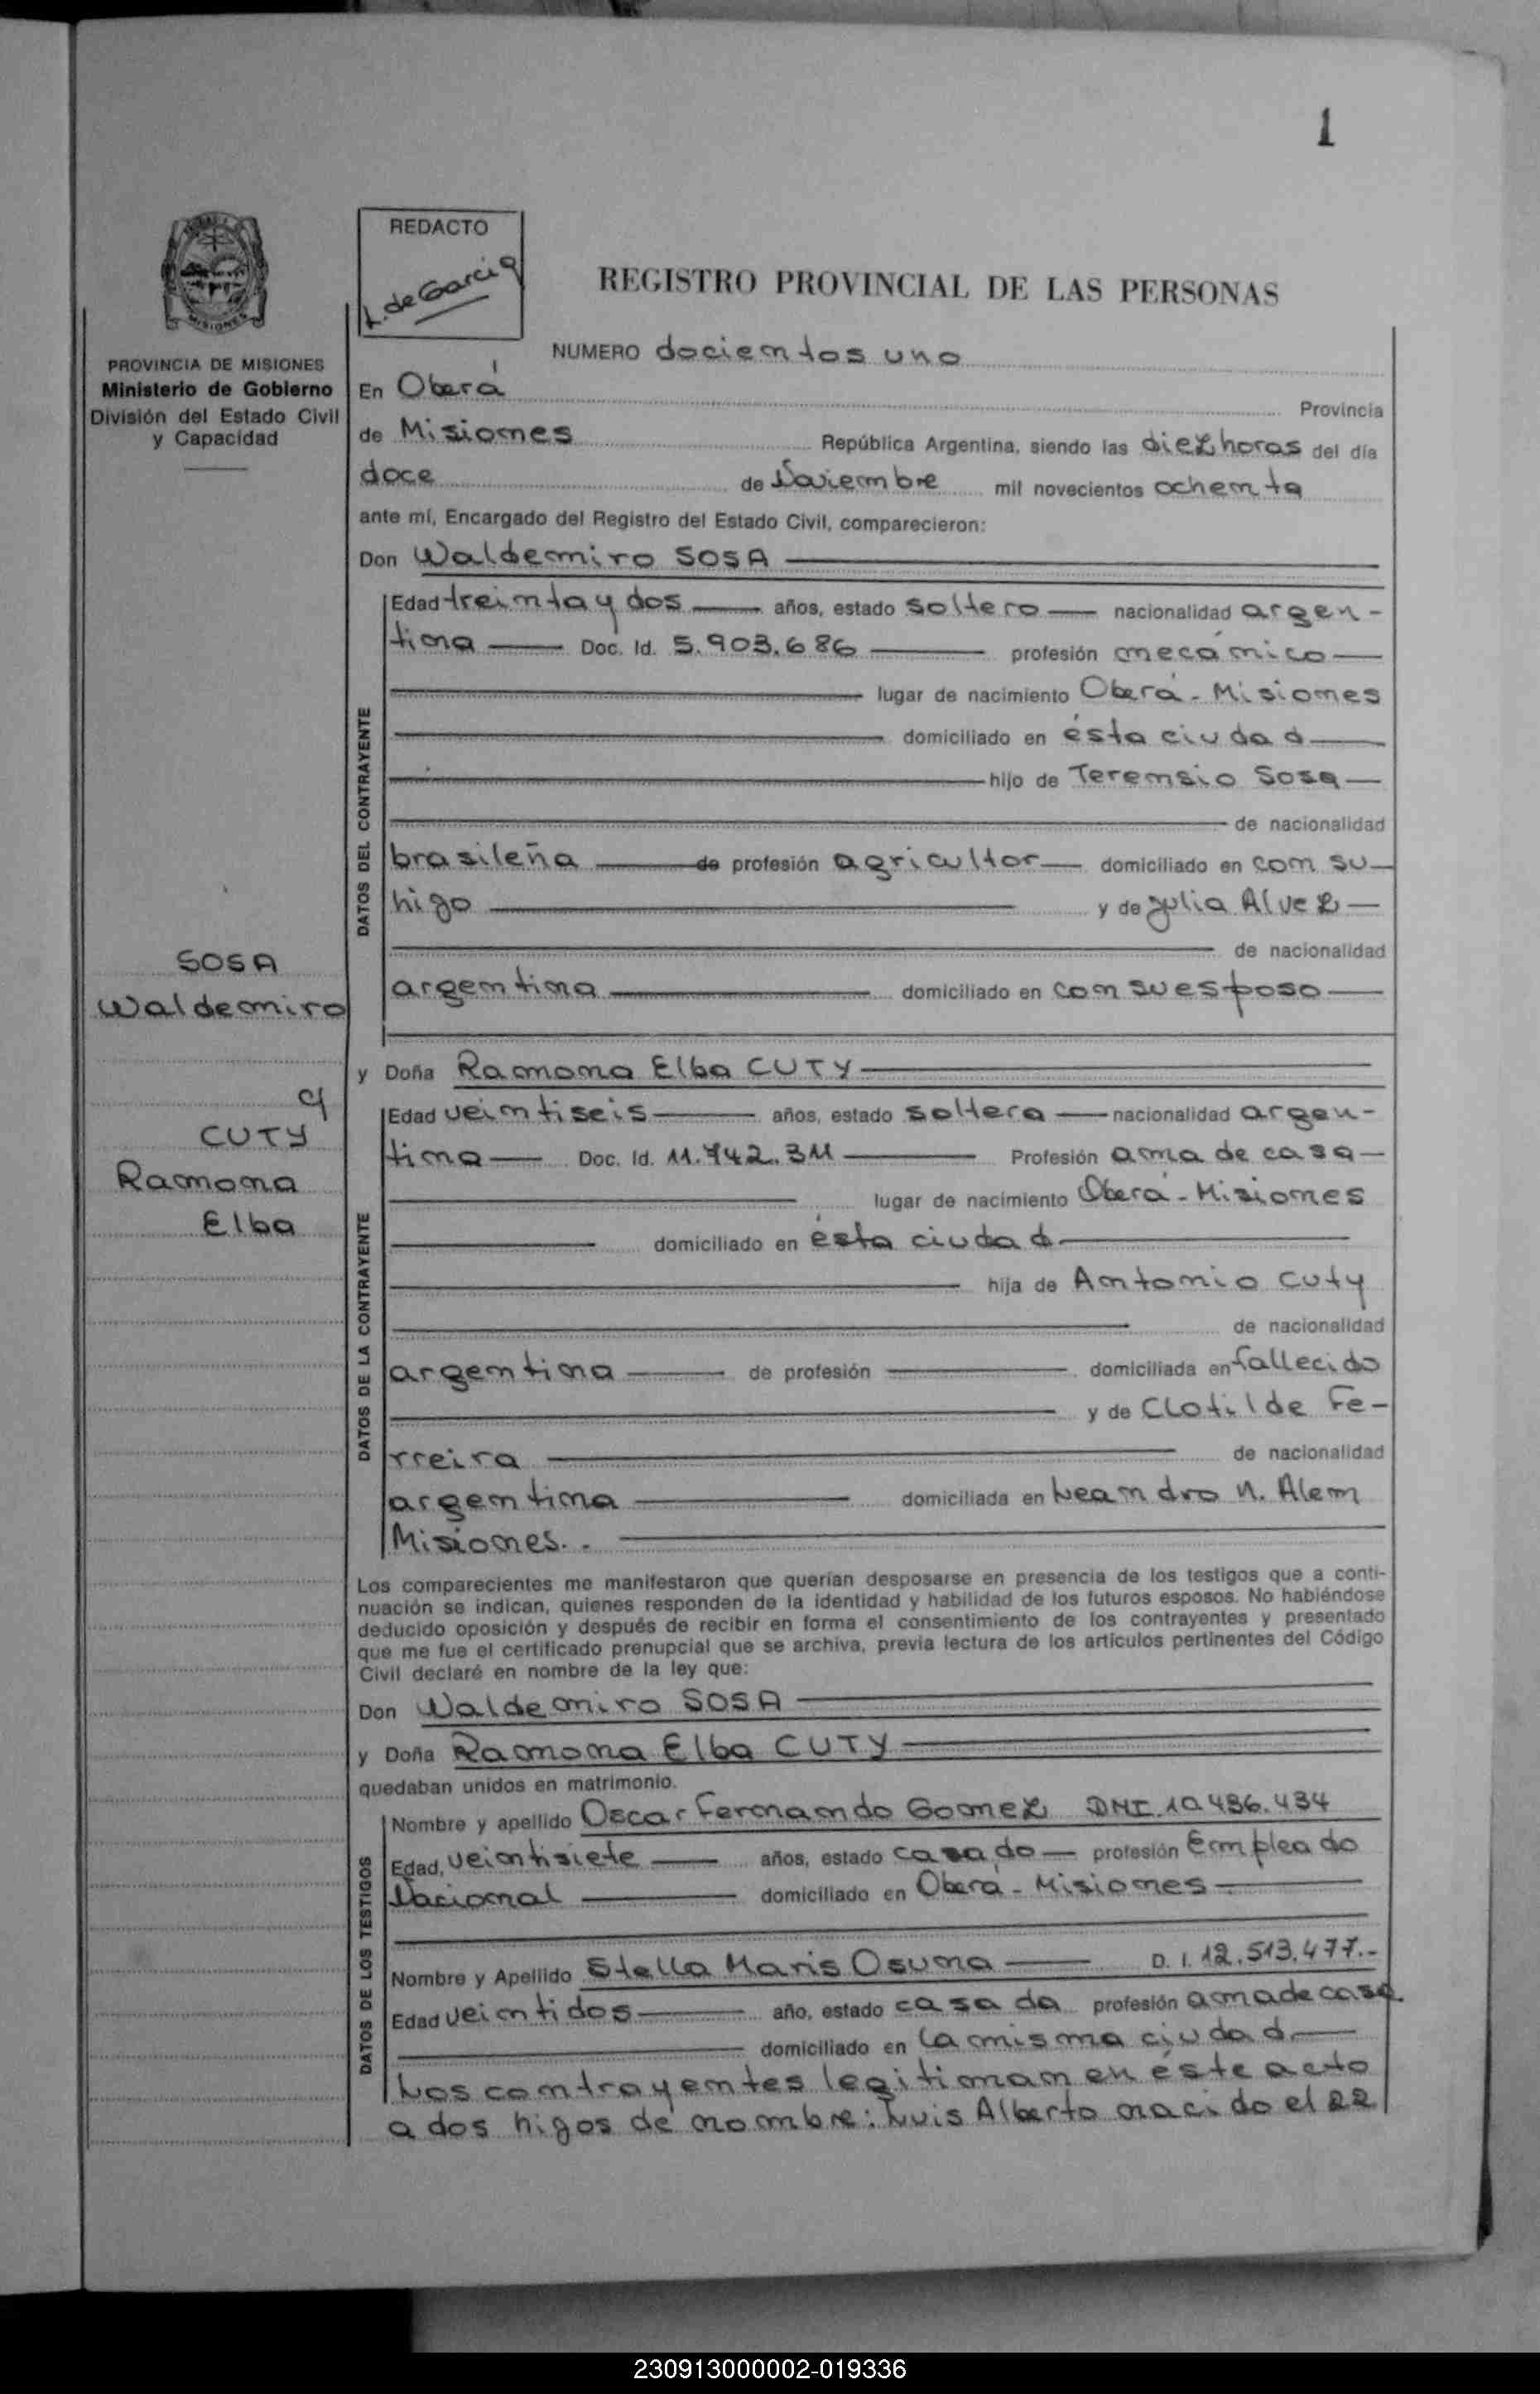 1
REDACTO
L. de Garcia
REGISTRO PROVINCIAL DE LAS PERSONAS
MISIONES
PROVINCIA DE MISIONES
Ministerio de Gobierno
División del Estado Civil
y Capacidad
NUMERO docientos uno
En Oberá Provincia
de Misiones República Argentina, siendo las diez horas del día
doce de Noviembre mil novecientos ochenta
ante mí, Encargado del Registro del Estado Civil, comparecieron:
Don Waldemiro SOSA
DATOS DEL CONTRAYENTE
Edad treinta y dos años, estado soltero nacionalidad argen-
tina Doc. Id. 5.903.686 profesión mecánico
lugar de nacimiento Oberá - Misiones
domiciliado en ésta ciudad
hijo de Terensio Sosa
de nacionalidad
brasileña de profesión agricultor domiciliado en con su
higo y de Julia Alvez
de nacionalidad
argentina domiciliado en con su esposo
SOSA
Waldemiro
y
CUTY
Ramona
Elba
y Doña Ramona Elba CUTY
DATOS DE LA CONTRAYENTE
Edad veintiseis años, estado soltera nacionalidad argen-
tina Doc. Id. 11.742.311 Profesión ama de casa
lugar de nacimiento Oberá - Misiones
domiciliado en ésta ciudad
hija de Antonio Cuty
de nacionalidad
argentina de profesión domiciliada en fallecido
y de Clotilde Fe-
rreira de nacionalidad
argentina domiciliada en Leandro N. Alem
Misiones.-
Los comparecientes me manifestaron que querían desposarse en presencia de los testigos que a conti-
nuación se indican, quienes responden de la identidad y habilidad de los futuros esposos. No habiéndose
deducido oposición y después de recibir en forma el consentimiento de los contrayentes y presentado
que me fue el certificado prenupcial que se archiva, previa lectura de los artículos pertinentes del Código
Civil declaré en nombre de la ley que:
Don Waldemiro SOSA
y Doña Ramona Elba CUTY
quedaban unidos en matrimonio.
DATOS DE LOS TESTIGOS
Nombre y apellido Oscar Fernando Gomez DNI. 10.436.434
Edad, veintisiete años, estado casado profesión Empleado
Nacional domiciliado en Oberá - Misiones
Nombre y Apellido Stella Maris Osuna D. I. 12.513.477.-
Edad veintidos año, estado casada profesión ama de casa
domiciliado en la misma ciudad.
Los contrayentes legitiman en éste acto
a dos higos de nombre: Luis Alberto nacido el 22
230913000002-019336